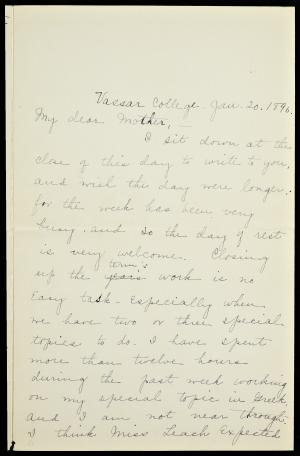 Vassar College. Jan. 20. 1896.
My dear Mother, —
I sit down at the
close of this day to write to you,
and wish the day were longer;
for the week has been very
busy, and so the day of rest
is very welcome. Closing
up the term's work is no
Easy task - Especially when
we have two or three special
topics to do. I have spent
more than twelve hours
during the past week working
on my special topic in Greek,
and I am not near through.
I think Miss Leach Expected